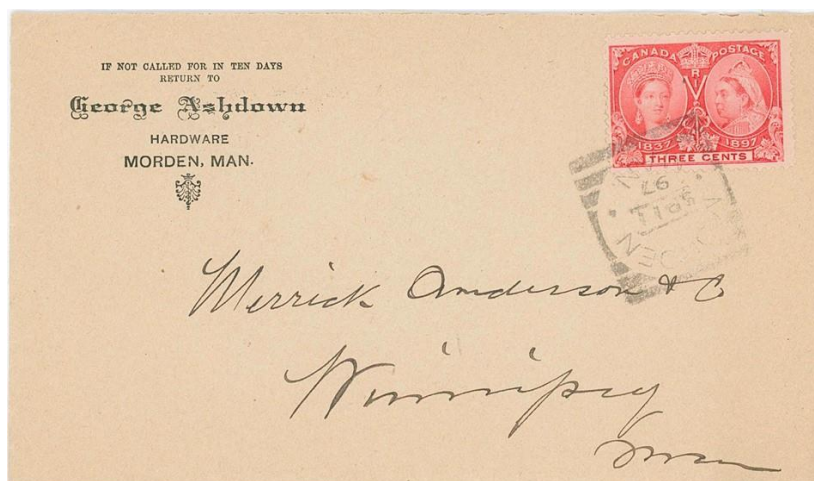 IF NOT CALLED FOR IN TEN DAYS
RETURN TO
George Ashdown
HARDWARE
MORDEN, MAN.
CANADA POSTAGE
V R I
1837 1897
THREE CENTS
MORDEN
97
Merrick Anderson & C
Winnipeg
Man